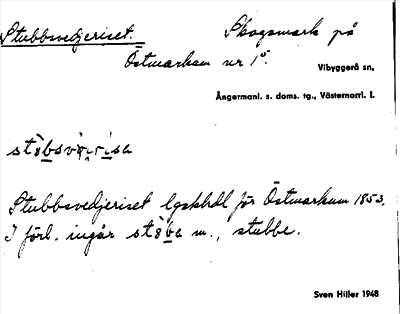 Stubbsvedjeriset. Skogsmark på
Östmarkum nr 1⁵.
Vibyggerå sn,
Ångermanl. s. doms. tg., Västernorrl. l.
Stubbsvedjeriset lgskhdl för Östmarkum 1853.
I förl. ingår m., stubbe.
Sven Hiller 1948